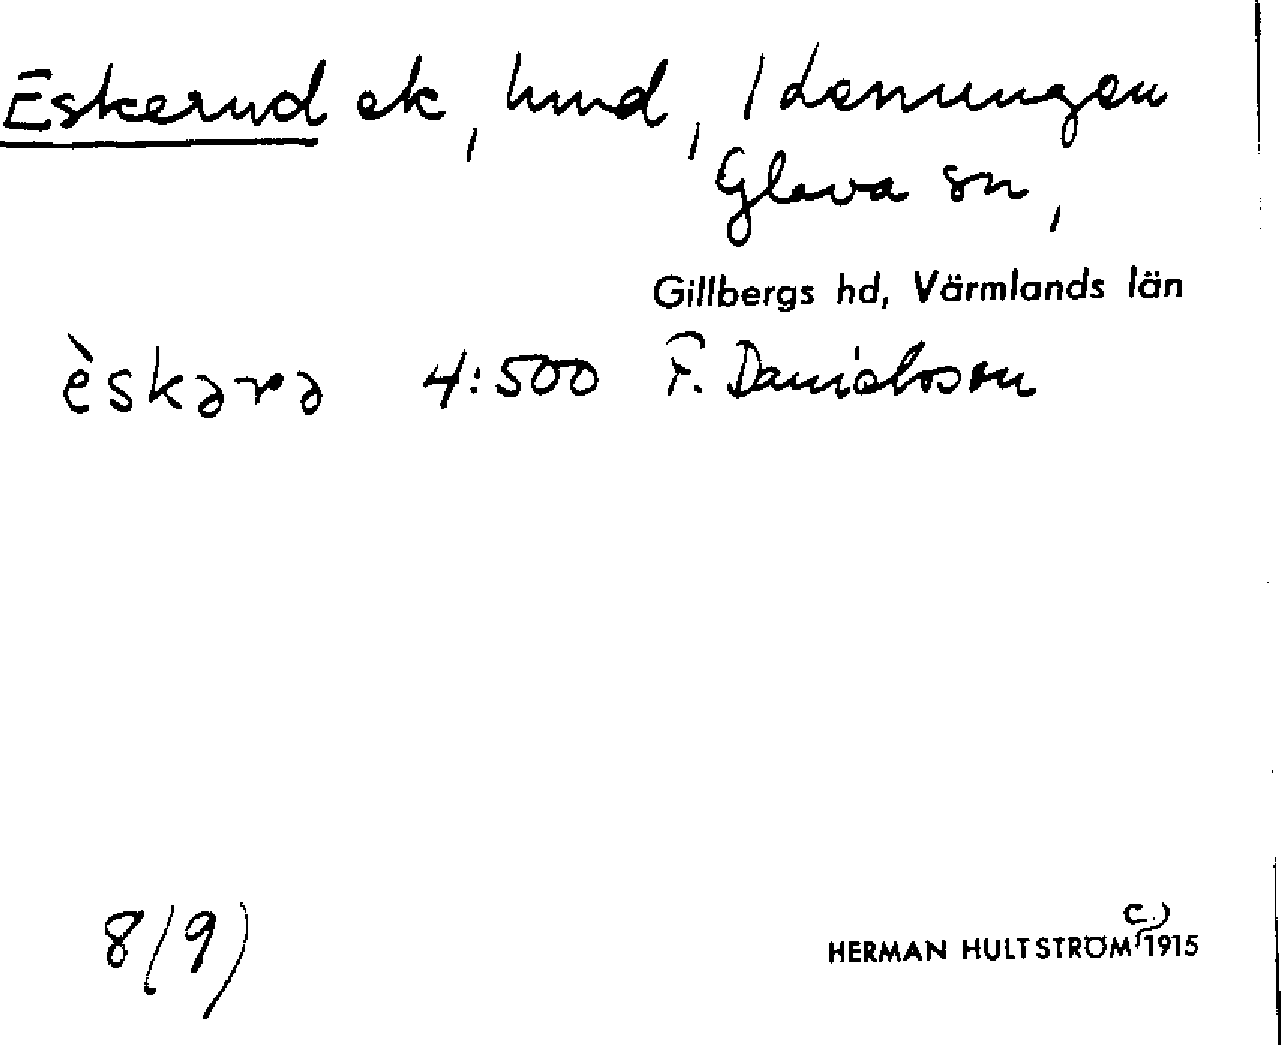 Eskerud ek, hmd, Idenungen
Glava sn,
Gillbergs hd, Värmlands län
èskərə 4:500 F. Danielsson
8(9)
HERMAN HULTSTRÖM (c.) 1915